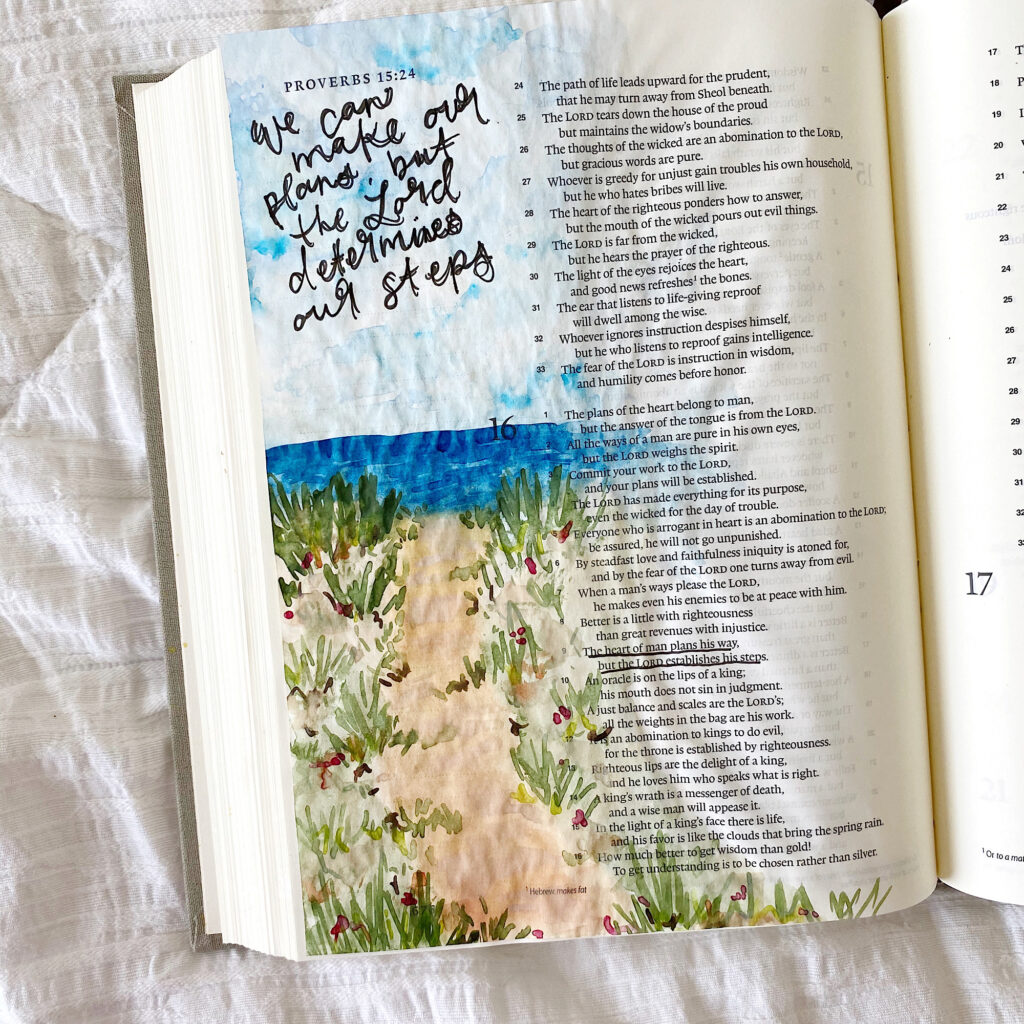 PROVERBS 15:24
we can
make our
plans but
the Lord
determines
our steps
24 The path of life leads upward for the prudent,
that he may turn away from Sheol beneath.
25 The LORD tears down the house of the proud
but maintains the widow's boundaries.
26 The thoughts of the wicked are an abomination to the LORD,
but gracious words are pure.
27 Whoever is greedy for unjust gain troubles his own household,
but he who hates bribes will live.
28 The heart of the righteous ponders how to answer,
but the mouth of the wicked pours out evil things.
29 The LORD is far from the wicked,
but he hears the prayer of the righteous.
30 The light of the eyes rejoices the heart,
and good news refreshes¹ the bones.
31 The ear that listens to life-giving reproof
will dwell among the wise.
32 Whoever ignores instruction despises himself,
but he who listens to reproof gains intelligence.
33 The fear of the LORD is instruction in wisdom,
and humility comes before honor.
16
1 The plans of the heart belong to man,
but the answer of the tongue is from the LORD.
2 All the ways of a man are pure in his own eyes,
but the LORD weighs the spirit.
3 Commit your work to the LORD,
and your plans will be established.
The LORD has made everything for its purpose,
even the wicked for the day of trouble.
Everyone who is arrogant in heart is an abomination to the LORD;
be assured, he will not go unpunished.
6 By steadfast love and faithfulness iniquity is atoned for,
and by the fear of the LORD one turns away from evil.
When a man's ways please the LORD,
he makes even his enemies to be at peace with him.
8 Better is a little with righteousness
than great revenues with injustice.
9 The heart of man plans his way,
but the LORD establishes his steps.
10 An oracle is on the lips of a king;
his mouth does not sin in judgment.
A just balance and scales are the LORD's;
all the weights in the bag are his work.
12 It is an abomination to kings to do evil,
for the throne is established by righteousness.
13 Righteous lips are the delight of a king,
and he loves him who speaks what is right.
A king's wrath is a messenger of death,
and a wise man will appease it.
15 In the light of a king's face there is life,
and his favor is like the clouds that bring the spring rain.
16 How much better to get wisdom than gold!
To get understanding is to be chosen rather than silver.
¹ Hebrew makes fat
17
18
19
20
21
22
23
24
25
26
27
28
29
30
31
32
33
17
¹ Or to a